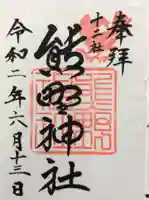 奉拝
十二社
熊野神社
令和二年六月十三日